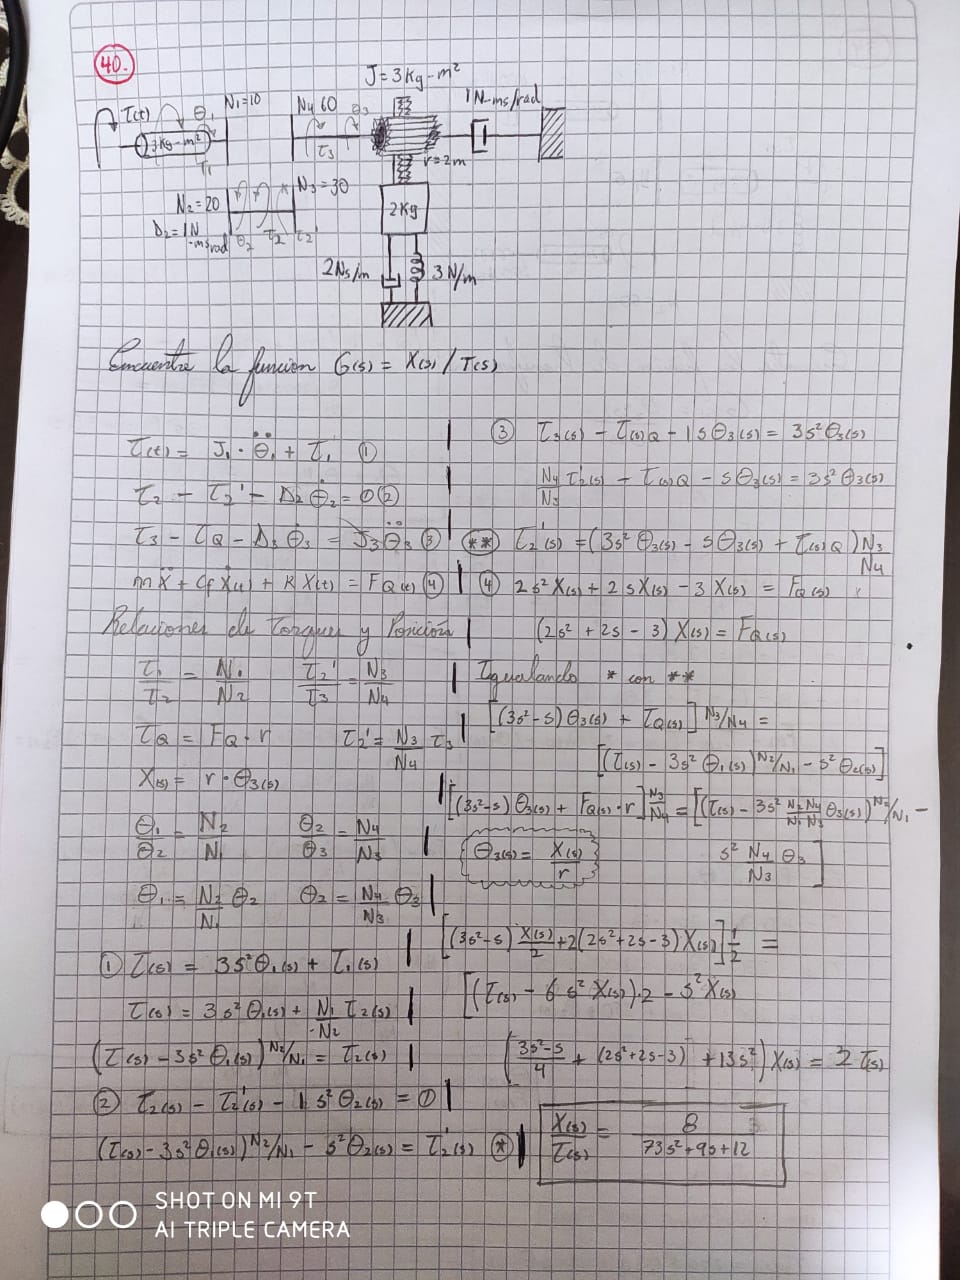 40.
J = 3 Kg-m²
τ(t) θ₁ N₁=10 N4 60 θ₃ 1 N-ms/rad
3 Kg-m² τ₃ r=2m
τ₁
N₂=20 N₃=30 2Kg
D₂=1N-ms/rad θ₂ τ₂ τ₂'
2Ns/m 3 N/m
Encuentre la funcion G(s) = X(s) / T(s)
τ(t) = J₁ · θ̈₁ + τ₁ ①
τ₂ - τ₂' - D₂ θ̇₂ = 0 ②
τ₃ - τQ - D₃ θ̇₃ = J₃ θ̈₃ ③
mẍ + Cf ẋ(t) + K X(t) = FQ(t) ④
Relaciones de Torques y Posición
τ₁/τ₂ = N₁/N₂ τ₂'/τ₃ = N₃/N₄
τQ = FQ · r τ₂' = N₃/N₄ τ₃
X(s) = r · θ₃(s)
θ₁/θ₂ = N₂/N₁ θ₂/θ₃ = N₄/N₃
θ₁ = N₂/N₁ θ₂ θ₂ = N₄/N₃ θ₃
① τ(s) = 3s²θ₁(s) + τ₁(s)
τ(s) = 3s²θ₁(s) + N₁/N₂ τ₂(s)
(τ(s) - 3s²θ₁(s)) N₂/N₁ = τ₂(s)
② τ₂(s) - τ₂'(s) - 1 s²θ₂(s) = 0
(τ(s) - 3s²θ₁(s)) N₂/N₁ - s²θ₂(s) = τ₂'(s) (*)
③ τ₃(s) - τ(s)Q - 1sθ₃(s) = 3s²θ₃(s)
N₄/N₃ τ₂'(s) - τ(s)Q - sθ₃(s) = 3s²θ₃(s)
(**) τ₂'(s) = (3s²θ₃(s) - sθ₃(s) + τ(s)Q) N₃/N₄
④ 2s²X(s) + 2sX(s) - 3X(s) = FQ(s)
(2s² + 2s - 3) X(s) = FQ(s)
Igualando * con **
[(3s²-s)θ₃(s) + τQ(s)] N₃/N₄ =
[(τ(s) - 3s²θ₁(s)) N₂/N₁ - s²θ₂(s)]
[(3s²-s)θ₃(s) + FQ(s)·r] N₃/N₄ = [(τ(s) - 3s² N₂N₄/N₁N₃ θ₃(s)) N₂/N₁ -
θ₃(s) = X(s)/r s² N₄/N₃ θ₃]
[(3s²-s) X(s)/2 + 2(2s²+2s-3)X(s)] 1/2 =
[(τ(s) - 6s²X(s))·2 - s²X(s)
((3s²-s)/4 + (2s²+2s-3) + 13s²) X(s) = 2τ(s)
X(s)/τ(s) = 8/(73s²+9s+12)
SHOT ON MI 9T
AI TRIPLE CAMERA